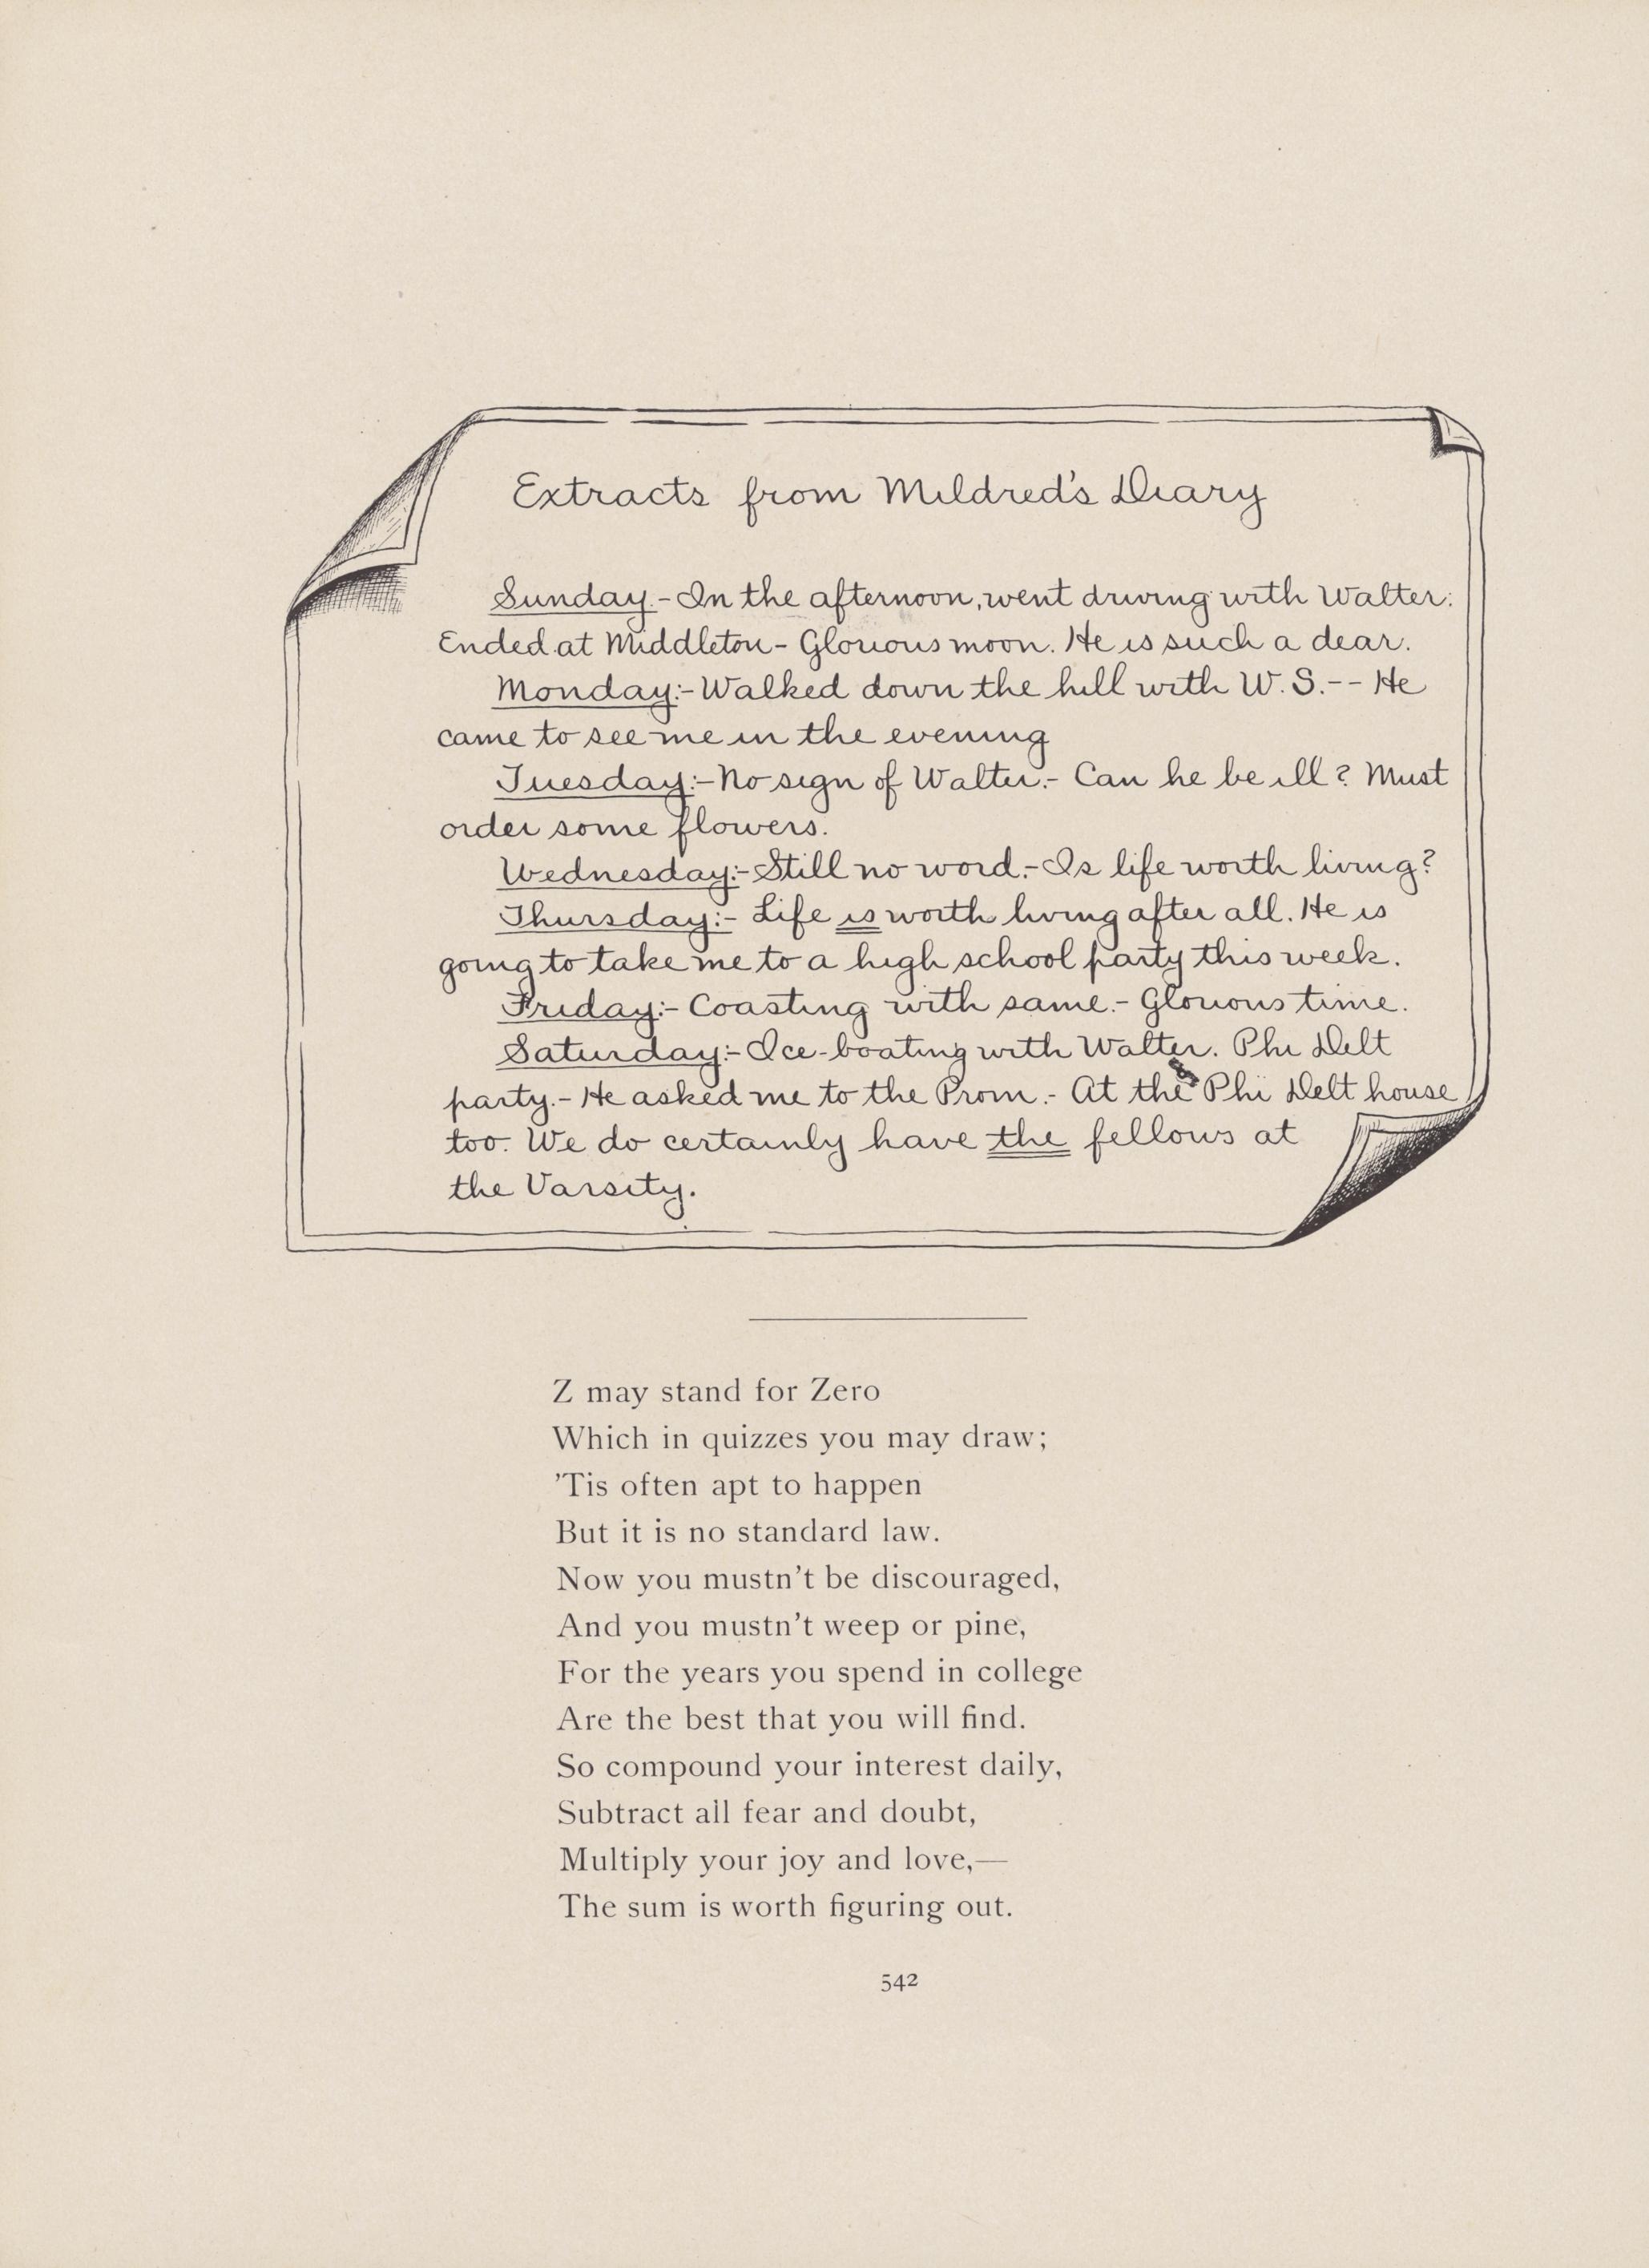 Extracts from Mildred's Diary
Sunday.- In the afternoon, went driving with Walter.
Ended at Middleton - Glorious moon. He is such a dear.
Monday:- Walked down the hill with W. S. -- He
came to see me in the evening
Tuesday:- No sign of Walter.- Can he be ill? Must
order some flowers.
Wednesday:- Still no word.- Is life worth living?
Thursday:- Life is worth living after all. He is
going to take me to a high school party this week.
Friday:- Coasting with same.- Glorious time.
Saturday:- Ice-boating with Walter. Phi Delt
party.- He asked me to the Prom.- At the Phi Delt house
too. We do certainly have the fellows at
the Varsity.
Z may stand for Zero
Which in quizzes you may draw;
'Tis often apt to happen
But it is no standard law.
Now you mustn't be discouraged,
And you mustn't weep or pine,
For the years you spend in college
Are the best that you will find.
So compound your interest daily,
Subtract all fear and doubt,
Multiply your joy and love,—
The sum is worth figuring out.
542